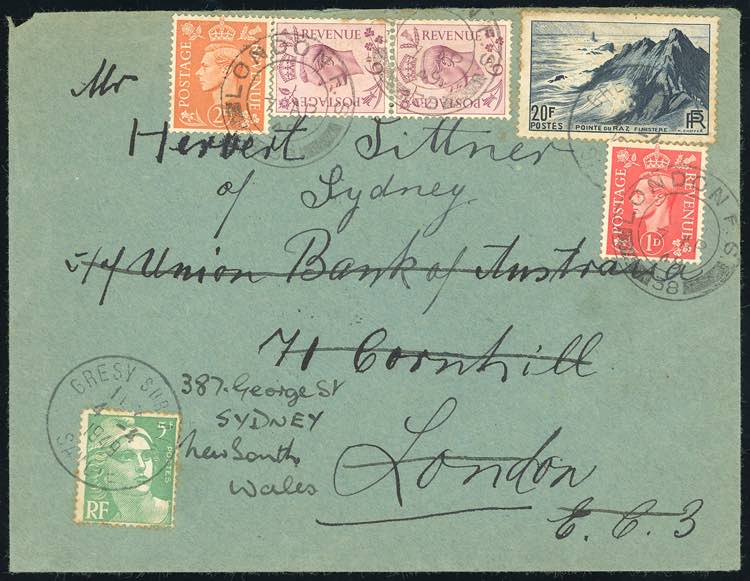 POSTAGE REVENUE 2½D
REVENUE POSTAGE 6D
REVENUE POSTAGE 6D
LONDON F.S.
20F
POSTES POINTE DU RAZ FINISTERE
RF
POSTAGE REVENUE 1D
LONDON F.S.
58
Mr
Herbert Tittner
of Sydney
c/o Union Bank of Australia
71 Cornhill
London
E.C.3
387 George St
SYDNEY
New South
Wales
GRESY SUR
1949
5F
POSTES
RF